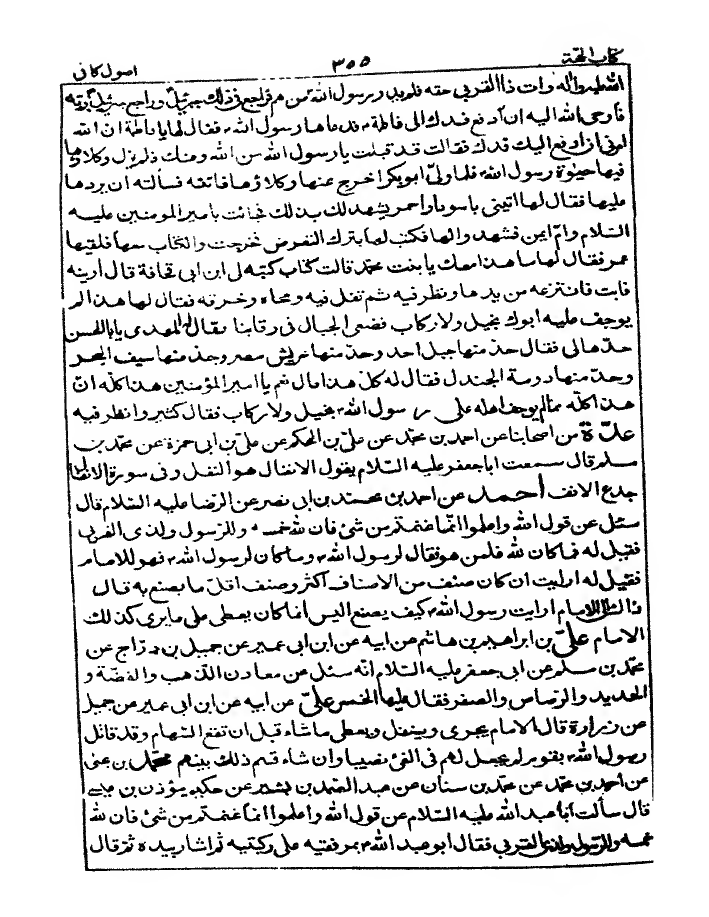 كتاب الحجة ٣٥٥ اصول كافى
الله عليه واله وات ذا القربى حقه فلم يدر رسول الله ص من هم فراجع فى ذلك جبرئيل وراجع جبرئيل ربه
فاوحى الله اليه ان ادفع فدك الى فاطمة ع فدعاها رسول الله ص فقال لها يا فاطمة ان الله
امرنى ان ادفع اليك فدك فقالت قد قبلت يا رسول الله من الله ومنك فلم يزل وكلاؤها
فيها حيوة رسول الله ص فلما ولى ابوبكر اخرج عنها وكلاؤها فاتته فسألته ان يردها
عليها فقال لها ائتينى باسود او احمر يشهد لك بذلك فجائت بامير المؤمنين عليه
السلام وام ايمن فشهد والها فكتب لها بترك التعرض فخرجت والكتاب معها فلقيها
عمر فقال لها ما هذا معك يا بنت محمد قالت كتاب كتبه لى ابن ابى قحافة قال ارينه
فابت فانتزعه من يدها ونظر فيه ثم تفل فيه ومحاه وخرقه فقال لها هذا لم
يوجف عليه ابوك بخيل ولا ركاب فضعى الجبال فى رقابنا فقال له المهدى يا ابا الحسن
حدها لى فقال حد منها جبل احد وحد منها عريش مصر وحد منها سيف البحر
وحد منها دومة الجندل فقال له كل هذا قال نعم يا امير المؤمنين هذا كله ان
هذا كله مما لم يوجف اهله على رسول الله ص بخيل ولا ركاب فقال كثير وانظر فيه
عدة من اصحابنا عن احمد بن محمد عن على بن الحكم عن على بن ابى حمزة عن محمد بن
مسلم قال سمعت ابا جعفر عليه السلام يقول الانفال هو النفل وفى سورة الانفال
جدع الانف احمد عن احمد بن محمد بن ابى نصر عن الرضا عليه السلام قال
سئل عن قول الله واعلموا انما غنمتم من شئ فان لله خمسه وللرسول ولذى القربى
فقيل له فما كان لله فلمن هو فقال لرسول الله ص وما كان لرسول الله ص فهو للامام
فقيل له ارايت ان كان صنف من الاصناف اكثر وصنف اقل ما يصنع به قال
ذاك الى الامام ارايت رسول الله ص كيف يصنع اليس انما كان يعطى على ما يرى كذلك
الامام على بن ابراهيم بن هاشم عن ابيه عن ابن ابى عمير عن جميل بن دراج عن
محمد بن مسلم عن ابى جعفر عليه السلام انه سئل عن معادن الذهب والفضة و
الحديد والرصاص والصفر فقال عليها الخمس على عن ابيه عن ابن ابى عمير عن جميل
عن زرارة قال الامام يجرى وينفل ويعطى ما شاء قبل ان تقع السهام وقد قاتل
رسول الله ص بقوم لم يجعل لهم فى الفئ نصيبا وان شاء قسم ذلك بينهم محمد بن يحيى
عن احمد بن محمد عن محمد بن سنان عن عبد الصمد بن بشير عن حكيم مؤذن بن عيسى
قال سألت ابا عبد الله عليه السلام عن قول الله واعلموا انما غنمتم من شئ فان لله
خمسه وللرسول ولذى القربى فقال ابو عبد الله ع بمرفقيه على ركبتيه ثم اشار بيده ثم قال